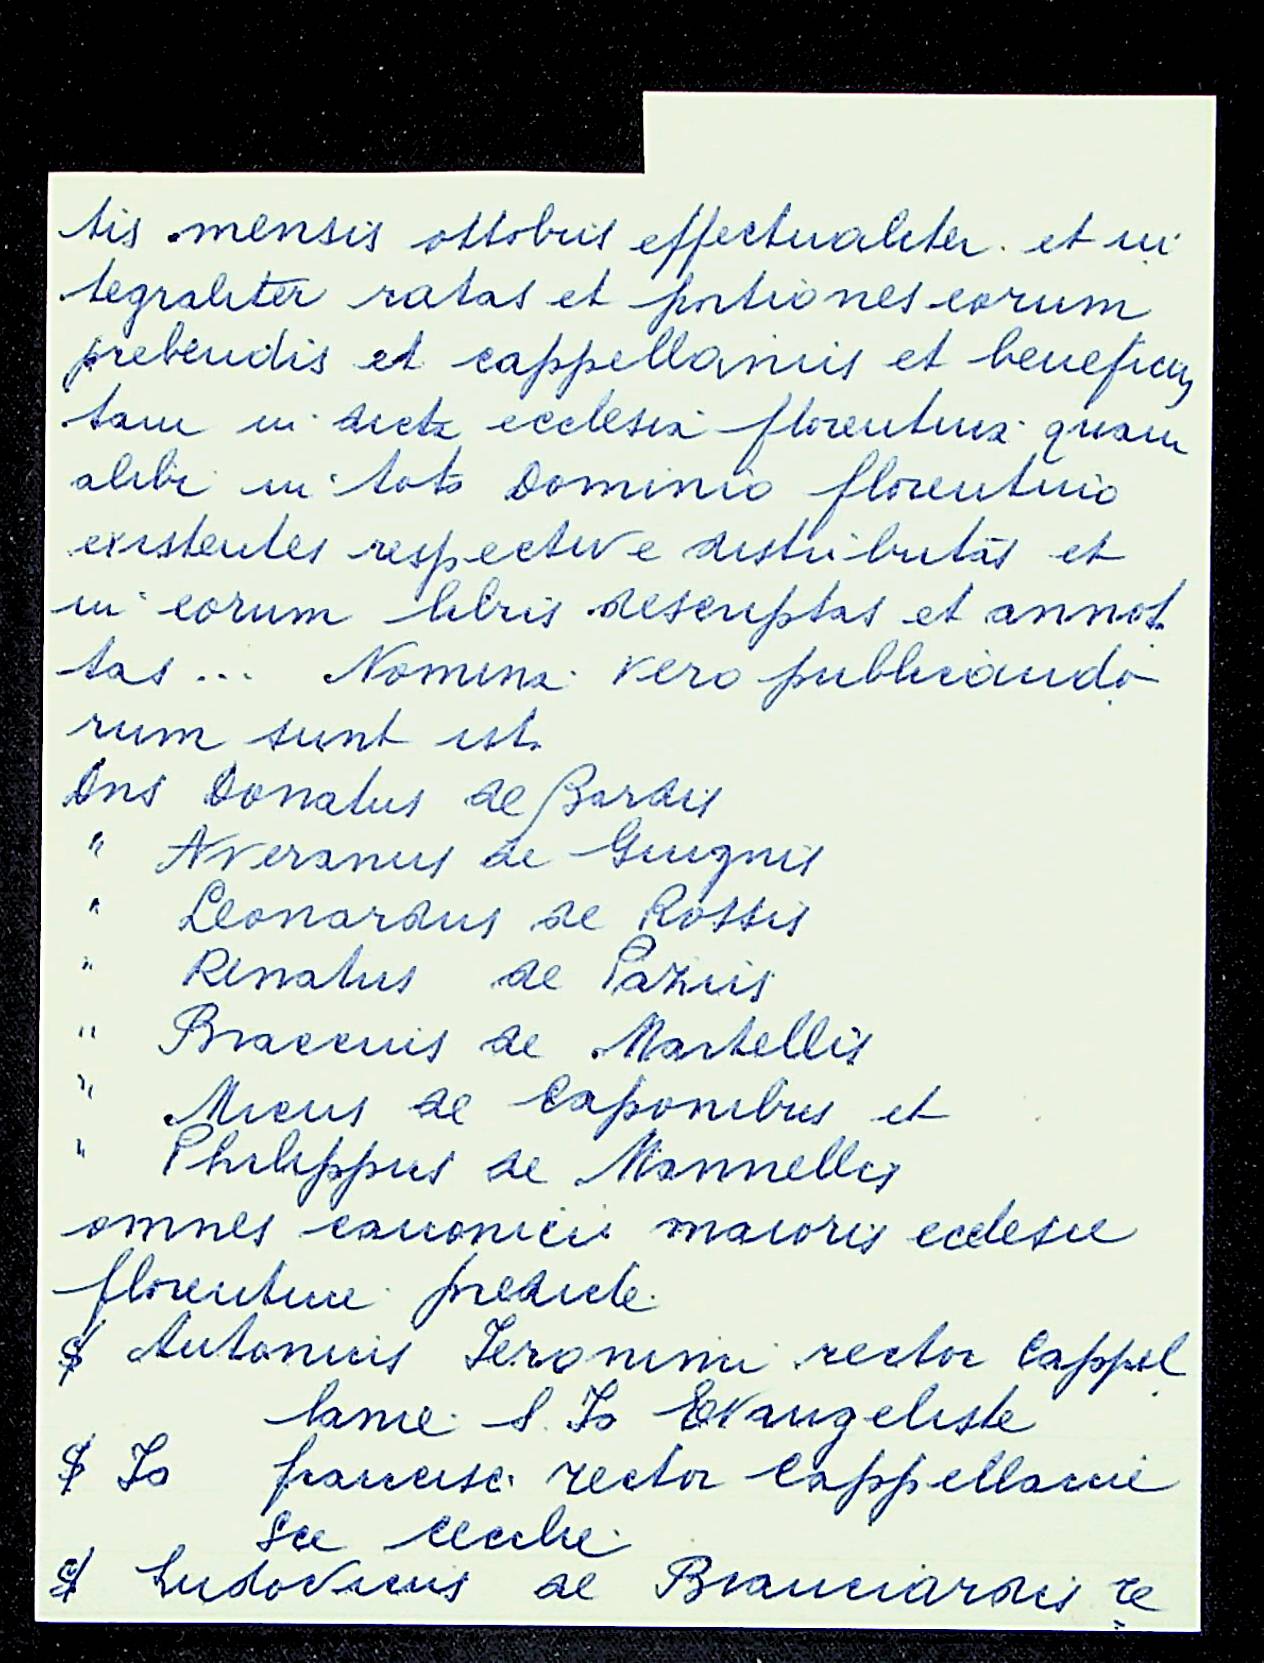 tis mensis ottobris effectualiter et in
tegraliter ratas et portiones eorum
prebendis et cappellaniis et beneficiis
tam in dicta ecclesia florentina quam
alibi in toto Dominio florentino
existentes respective distributas et
in eorum libris descriptas et annot
tas ... Nomina vero publicando
rum sunt ist.
Dns Donatus de Bardis
" Averanus de Giugnis
" Leonardus de Rossis
" Renatus de Pazziis
" Braccius de Martellis
" Micus de Caponibus et
" Philippus de Mannellis
omnes canonici maioris ecclesie
florentine predicte
S Antonius Ieronimi rector Cappel
lanie S. Io Evangeliste
S Io francisci rector Cappellanie
Sce Cecilie
S Ludovicus de Branciardis re